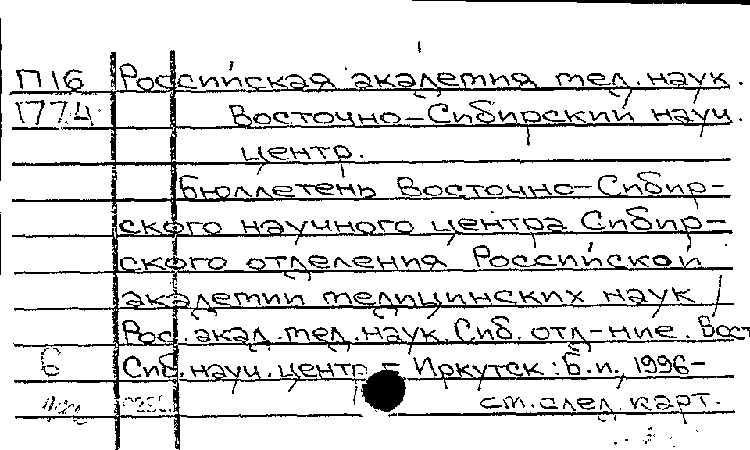 П16 Российская академия мед. наук.
1774 Восточно-Сибирский науч.
центр.
Бюллетень Восточно-Сибир-
ского научного центра Сибир-
ского отделения Российской
академии медицинских наук /
Рос. акад. мед. наук. Сиб. отд-ние. Вост
6 Сиб. науч. центр - Иркутск: Б.и., 1996-
см. след. карт.